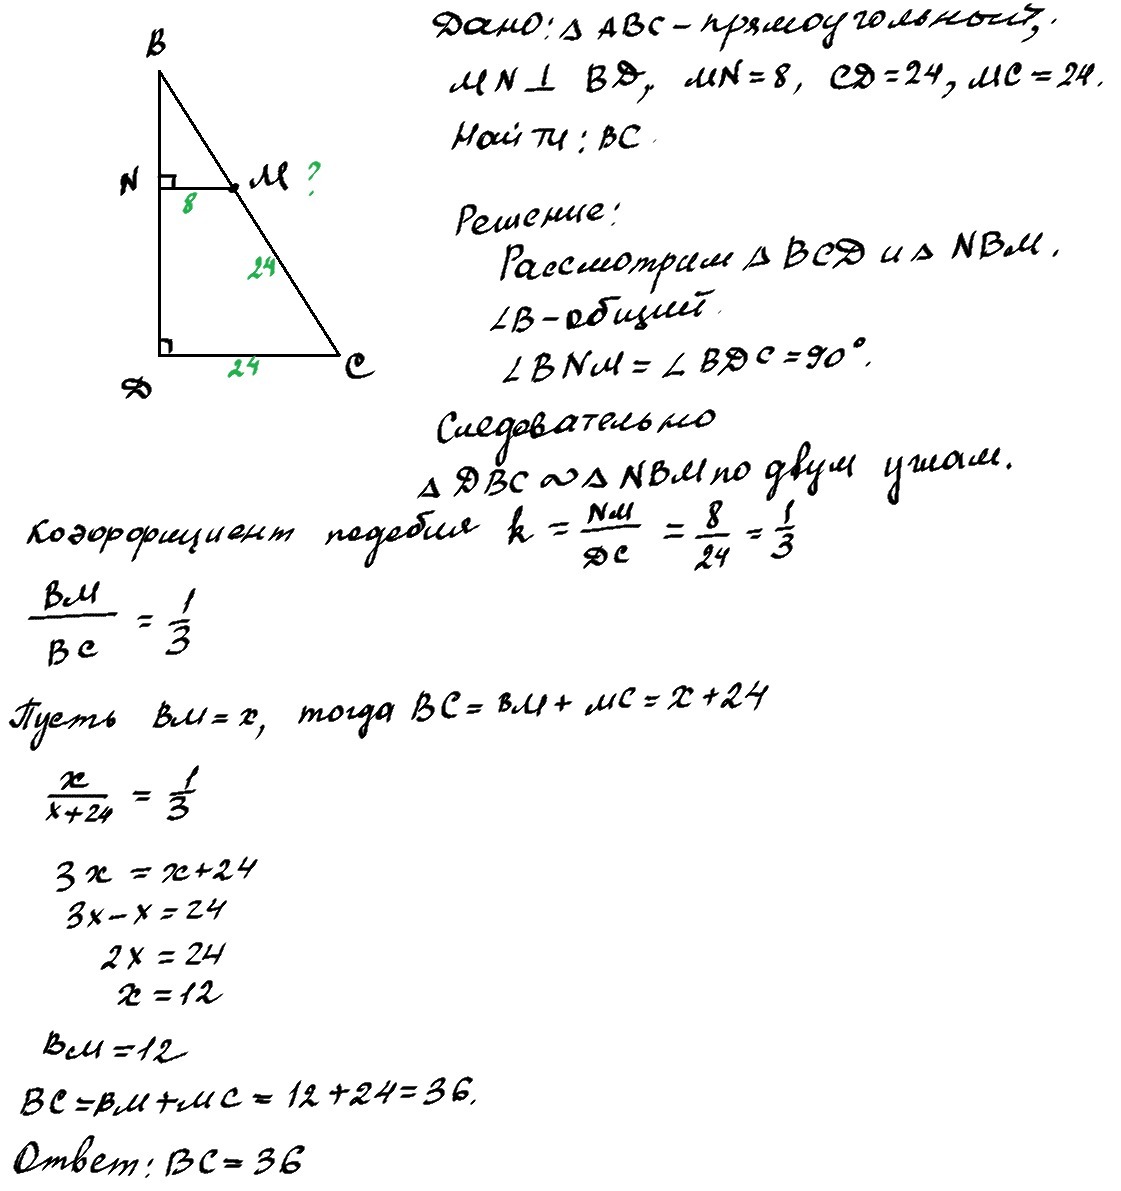 B
N
M ?
8
24
24
D
C
Дано: Δ ABC – прямоугольный,
MN ⊥ BD, MN = 8, CD = 24, MC = 24.
Найти: BC
Решение:
Рассмотрим Δ BCD и Δ NBM.
∠B – общий
∠BNM = ∠BDC = 90°.
Следовательно
Δ DBC ∾ Δ NBM по двум углам.
Коэффициент подобия k = NM/DC = 8/24 = 1/3
BM/BC = 1/3
Пусть BM = x, тогда BC = BM + MC = x + 24
x/(x+24) = 1/3
3x = x + 24
3x – x = 24
2x = 24
x = 12
BM = 12
BC = BM + MC = 12 + 24 = 36.
Ответ: BC = 36